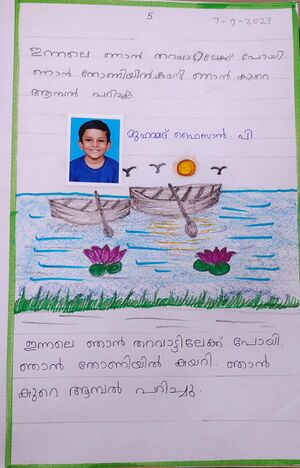 5
7-7-2023
ഇന്നലെ ഞാൻ തറവാട്ടിലേക്ക് പോയി.
ഞാൻ തോണിയിൽ കയറി ഞാൻ കുറെ
ആമ്പൽ പറിച്ചു
മുഹമ്മദ് ഫൈസാൻ . പി
ഇന്നലെ ഞാൻ തറവാട്ടിലേക്ക് പോയി.
ഞാൻ തോണിയിൽ കയറി. ഞാൻ
കുറെ ആമ്പൽ പറിച്ചു.